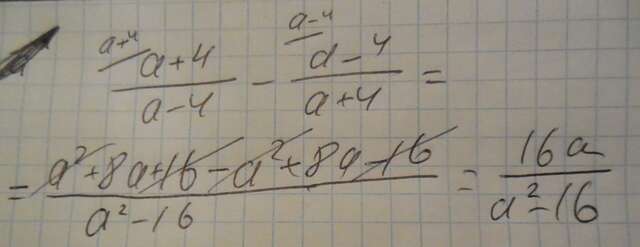 a+4 a-4
a+4/a-4 - a-4/a+4 =
= a²+8a+16-a²+8a-16/a²-16 = 16a/a²-16